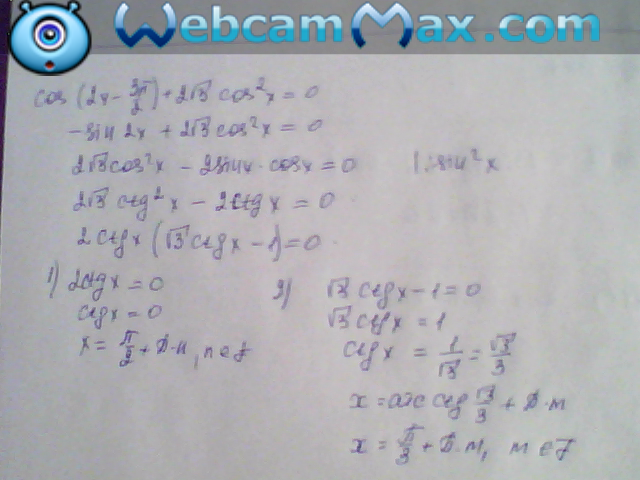 WebcamMax.com
cos(2x - 3π/2) + 2√3 cos²x = 0
-sin 2x + 2√3 cos²x = 0
2√3 cos²x - 2sinx · cosx = 0 | : sin²x
2√3 ctg²x - 2ctgx = 0
2ctgx (√3 ctgx - 1) = 0
1) 2ctgx = 0
ctgx = 0
x = π/2 + π·n, n ∈ Z
2) √3 ctgx - 1 = 0
√3 ctgx = 1
ctgx = 1/√3 = √3/3
x = arcctg √3/3 + π·m
x = π/3 + π·m, m ∈ Z